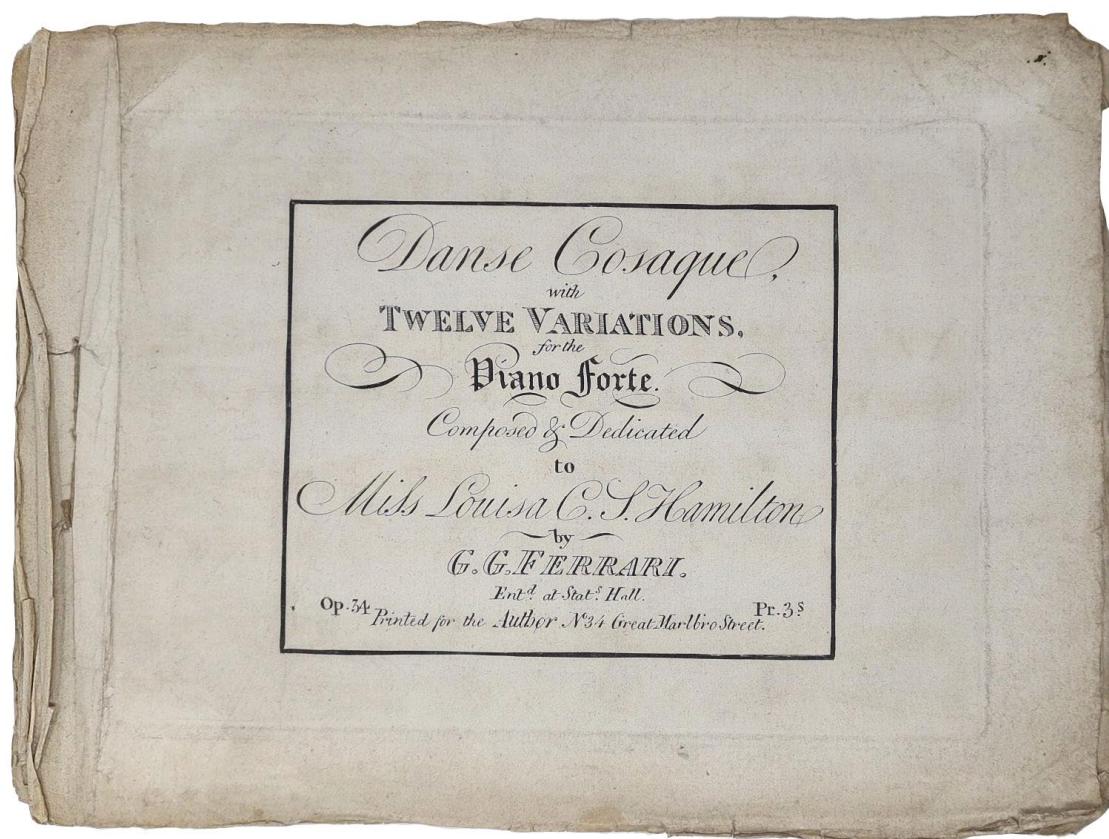 Danse Cosaque,
with
TWELVE VARIATIONS,
for the
Piano Forte.
Composed & Dedicated
to
Miss Louisa C. S. Hamilton
by
G. G. FERRARI.
Entd. at Stats. Hall.
Op. 34 Pr. 3s
Printed for the Author No 34 Great Marlbro Street.